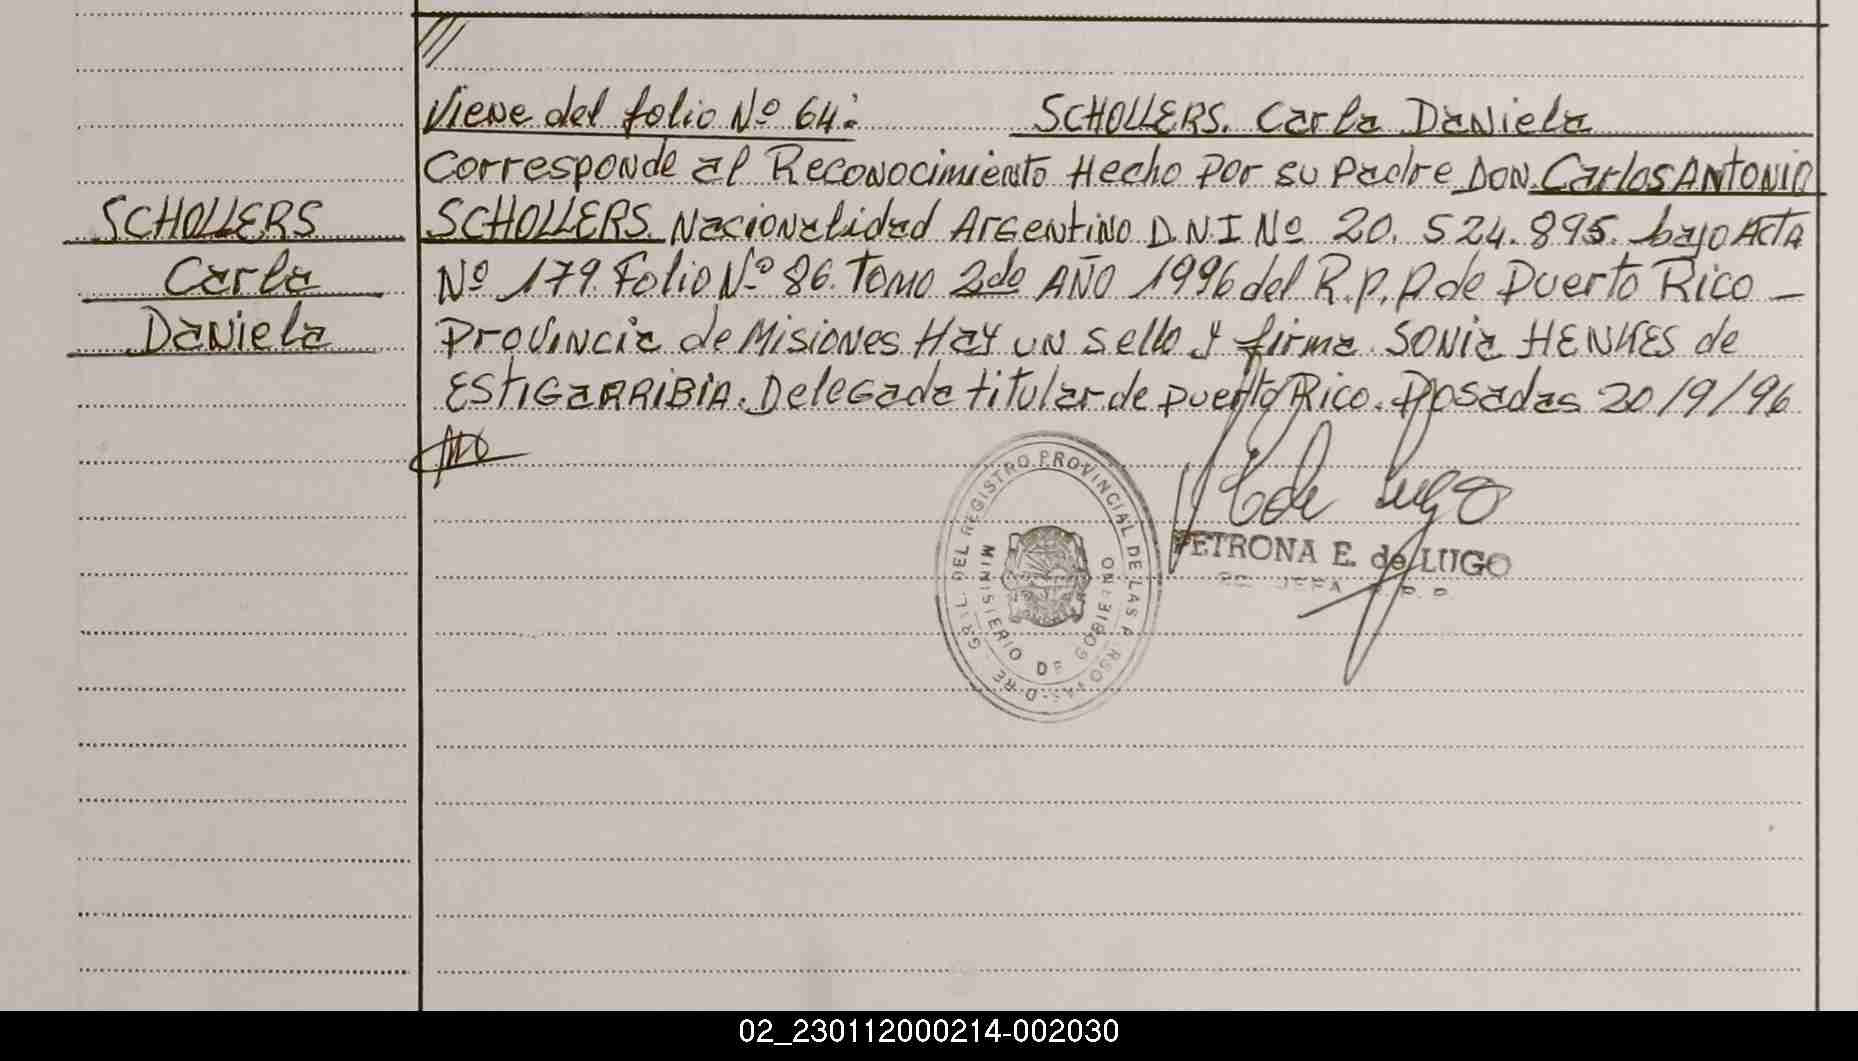 Viene del folio Nº 64: SCHOLLERS. Carla Daniela
Corresponde al Reconocimiento Hecho por su padre DON. Carlos ANTONIO
SCHOLLERS. Nacionalidad Argentino D.N.I Nº 20. 524.895. bajo Acta
Nº 179. Folio Nº 86. Tomo 2do AÑO 1996 del R.p.p de Puerto Rico –
Provincia de Misiones Hay un sello y firma. SONIA HENKES de
ESTIGARRIBIA. Delegada titular de puerto Rico. Posadas 20/9/96
SCHOLLERS
Carla
Daniela
de Lugo
PETRONA E. de LUGO
JEFA
DEL REGISTRO PROVINCIAL DE LAS
MINISTERIO DE GOBIERNO
02_230112000214-002030